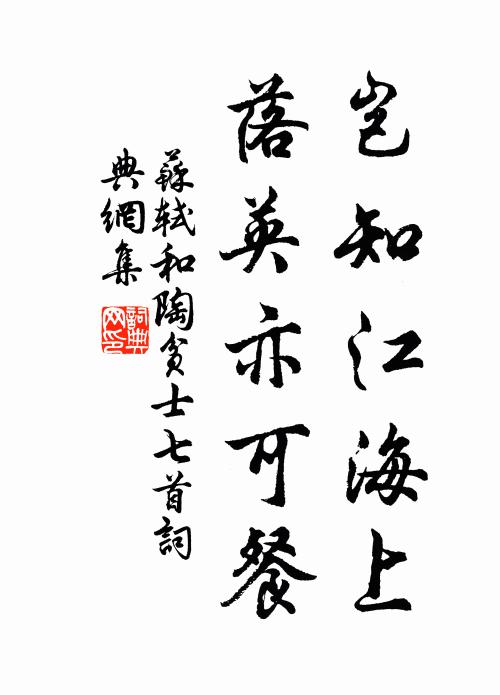 岂知江海上
落英亦可餐
蘇軾和陶貧士七首詞
典網集
詞典网印